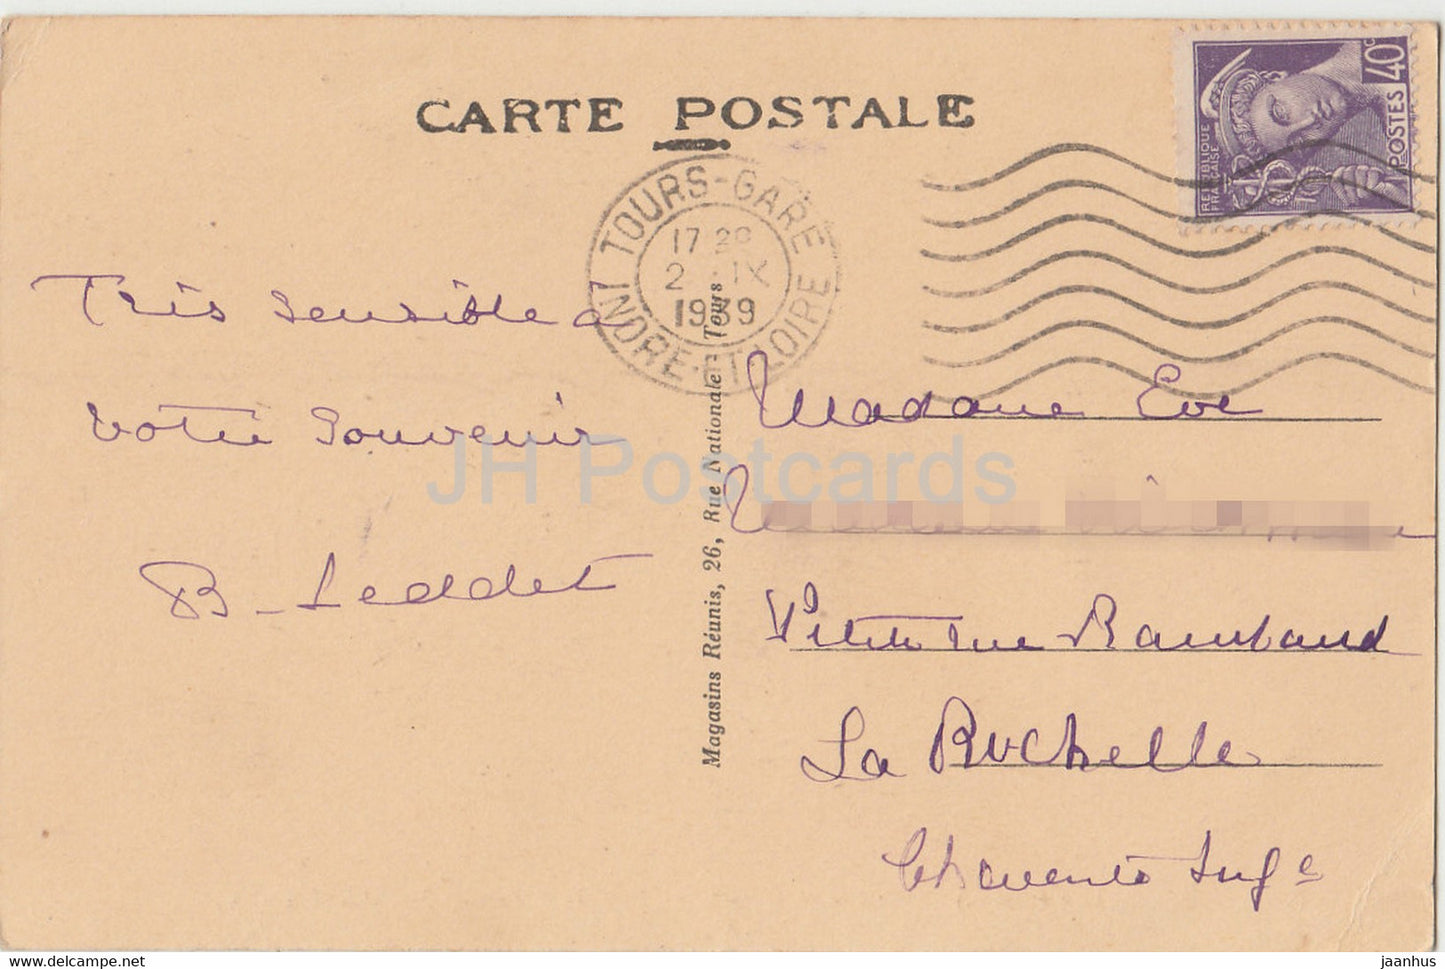 CARTE POSTALE
40c
POSTES
REPUBLIQUE
FRANCAISE
TOURS-GARE
17 30
2 IX
1939
INDRE-ET-LOIRE
Très sensible à
votre souvenir
B. Leddet
Magasins Réunis, 26, Rue Nationale Tours
Madame Eve
rue Rambaud
La Rochelle
Charente Infre
JH Postcards
jaanhus